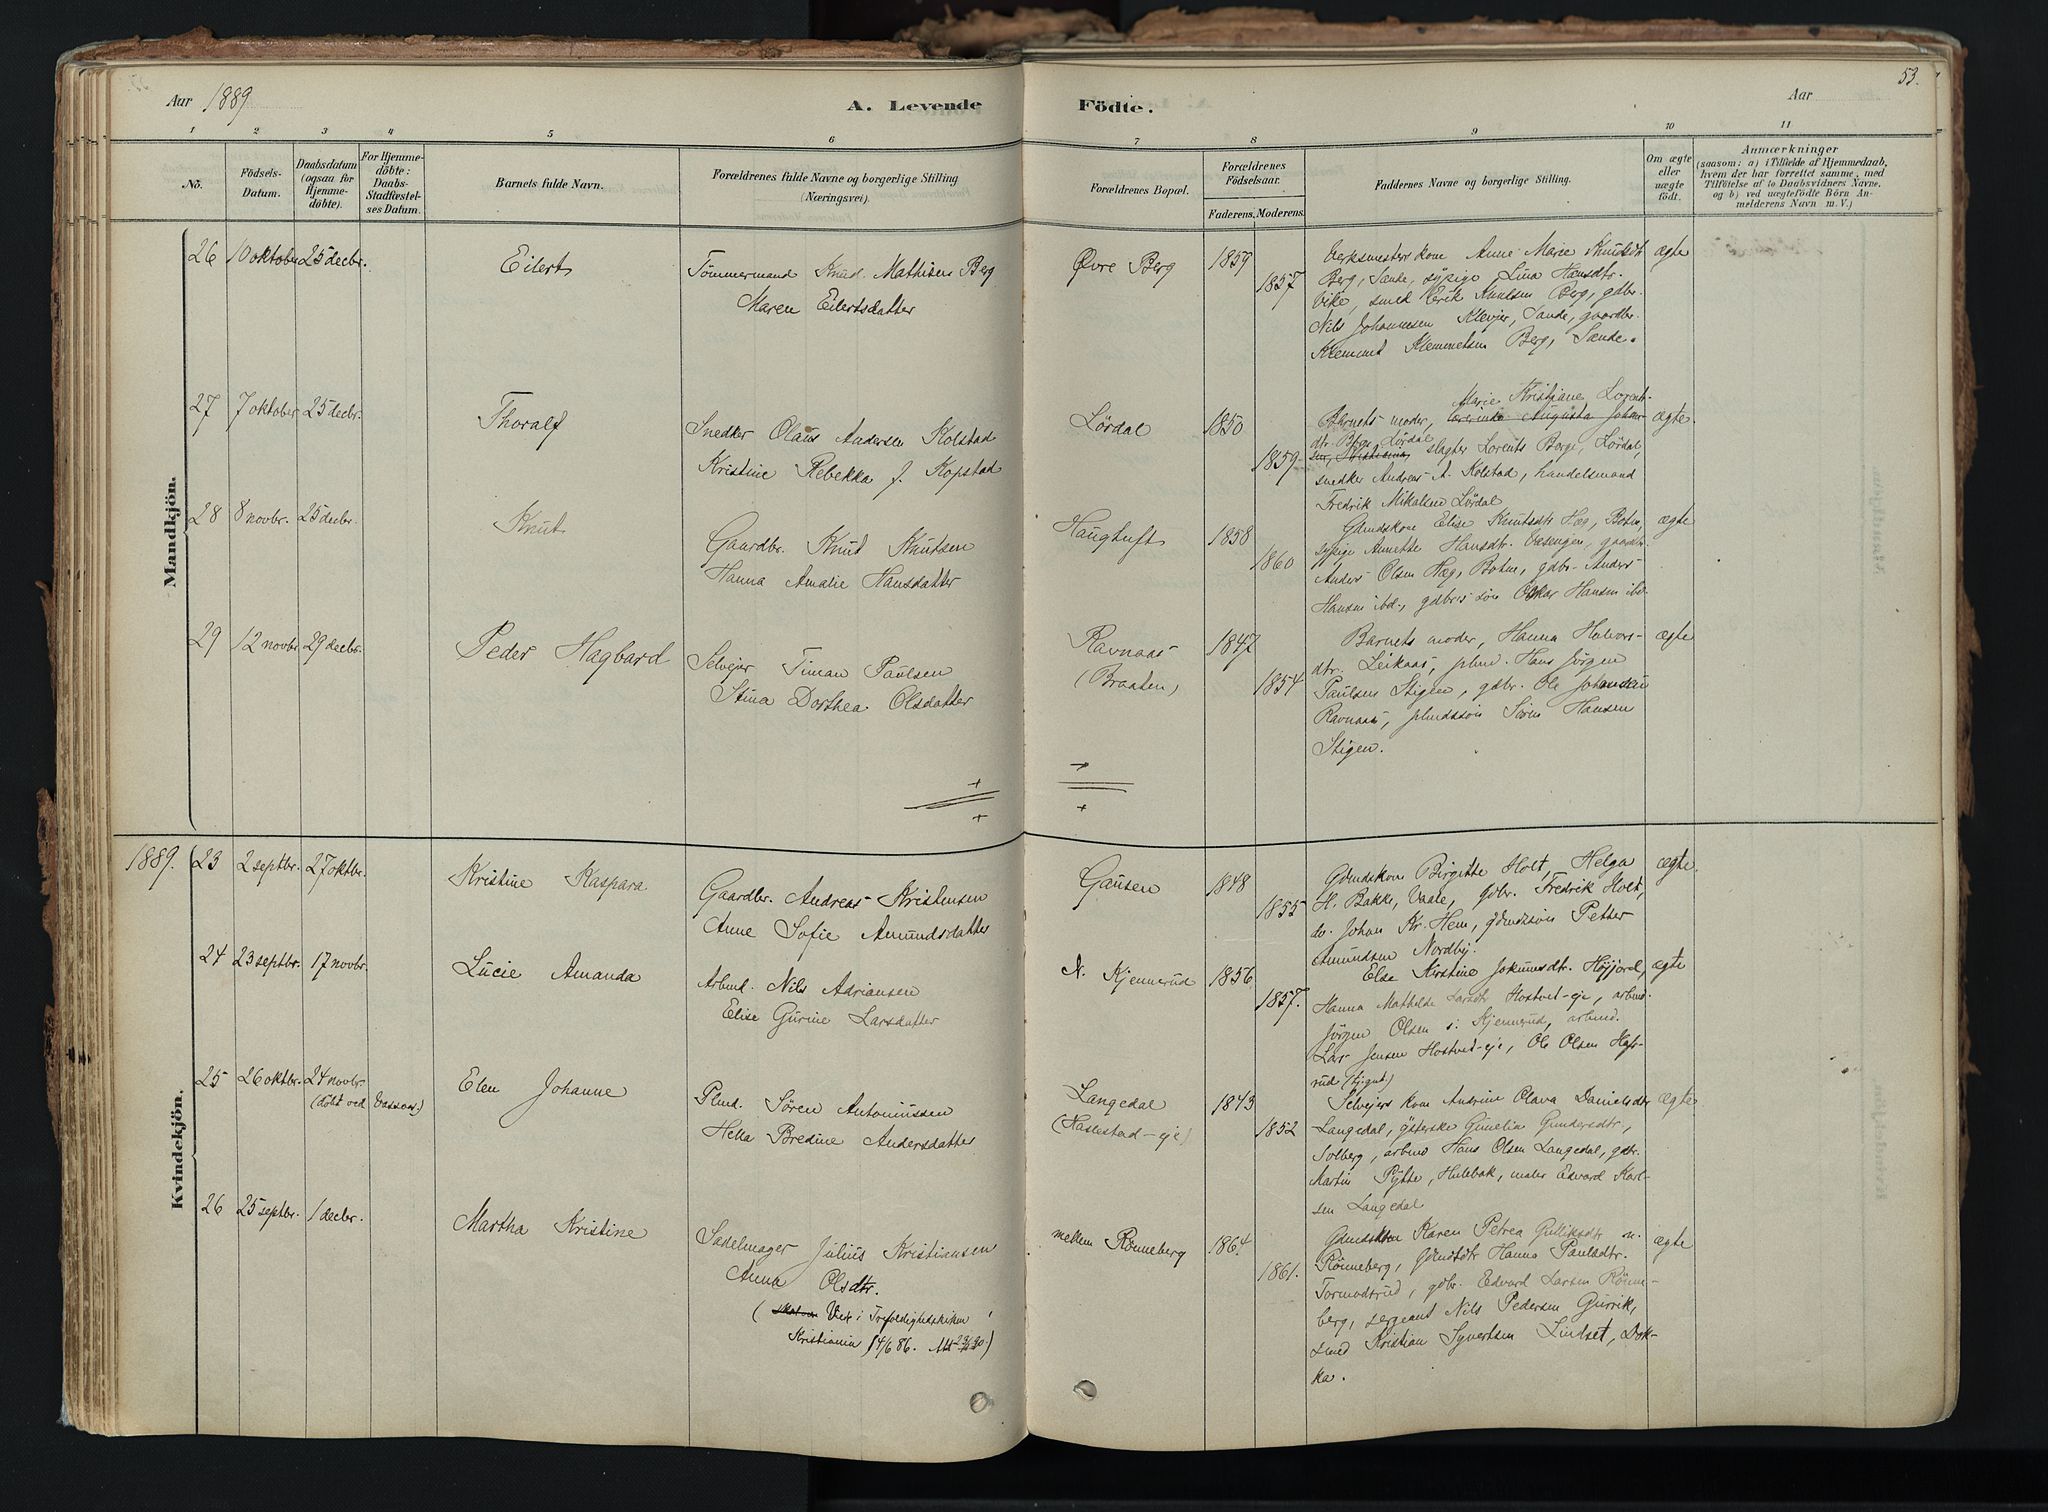 Aar 1889
A. Levende
Födte.
Aar
53.
1
2
3
4
5
6
7
8
9
10
11
No.
Födsels-
Datum.
Daabsdatum
(ogsaa for
Hjemme-
döbte).
For Hjemme-
döbte:
Daabs-
Stadfæstel-
ses Datum.
Barnets fulde Navn.
Forældrenes fulde Navne og borgerlige Stilling
(Næringsvei).
Forældrenes Bopæl.
Forældrenes
Födselsaar.
Faderens.
Moderens.
Faddernes Navne og borgerlige Stilling.
Om ægte
eller
uægte
födt.
Anmærkninger
(saasom: a) i Tilfælde af Hjemmedaab,
hvem der har forrettet samme, med
Tilföielse af to Daabsvidners Navne,
og b) ved uægtefödte Börn An-
melderens Navn m. V.)
Mandkjön.
26
10 oktober
25 decbr.
Eilert
Tömmermand Knud Mathisen Berg
Maren Eilertsdatter
Øvre Berg
1857
1857
Verksmesters kone Anne Marie Knudsdtr
Berg, Sande, sypige Lina Hansdtr.
Vike, smed Erik Knudsen Berg, gdbr.
Nils Johannesen Klevjer, Sande, gaardbr.
Klemmet Klemmetsen Berg, Sande.
ægte
27
7 oktober
25 decbr.
Thoralf
Snedker Olaus Andersen Kolstad
Kristine Rebekka f. Kopstad
Lördal
1850
1859
Marie Kristiane Lorents-
Barnets moder, Augusta Johan-
dtr. Berge Lördal
sen, Kristiania, slagter Lorents Berge, Lördal,
snedker Andreas A. Kolstad, handelsmand
Fredrik Mikalsen Lördal
ægte.
28
8 novbr.
25 decbr.
Knut
Gaardbr. Knut Knutsen
Hanna Amalie Hansdatter
Haugtuft
1858
1860
Gdmdskone Elise Knutsdtr Hæg, Botne,
sypige Annette Hansdtr. Vasengen, gaardbr.
Anders Olsen Hæg, Botne, gdbr. Anders
Hansen ibd., gdbrs sön Oskar Hansen ibd.
ægte
29
12 novbr.
29 decbr.
Peder Hagbard
Selvejer Timan Paulsen
Stina Dorthea Olsdatter
Ravnaas
(Braaten)
1847
1854
Barnets moder, Hanna Halvors-
dtr. Leikaas, plmd. Hans Jörgen
Paulsen Stigen, gdbr. Ole Johansen
Ravnaas, plmdssön Sören Hansen
Stigen.
ægte
Kvindekjön.
1889.
23
2 septbr.
27 oktbr.
Kristine Kaspara
Gaardbr. Andreas Kristensen
Anne Sofie Amundsdatter
Gausen
1848
1855
Gdmdskone Birgitte Holt, Helga
H. Bakke, Vaale, gdbr. Fredrik Holt,
do. Johan Kr. Hem, gdmdssön Petter
Amundsen Nordby.
ægte.
24
23 septbr.
17 novbr.
Lucie Amanda
Arbmd. Nils Adriansen
Elise Gurine Larsdatter
N. Kjennerud
1856
1857.
Else Kirstine Jokumsdtr. Höjjord,
Hanna Mathilde Larsdtr Hostvet-eje, arbmd.
Jörgen Olsen i Kjennerud, arbmd.
Lars Jensen Hostvet-eje, Ole Olsen Haf-
rud
ægte
25
26 oktbr.
24 novbr.
(döbt ved Vassaas.)
Elen Johanne
Plmd. Sören Antoniussen
Hella Bredine Andersdatter
Langedal
(Haslestad-eje)
1843
1852
Selvejers kone Andrine Olava Danielsdtr
Langedal, Gunelia Gundersdtr,
Solberg, arbmd Hans Olsen Langedal, gdbr.
Martin Pytte, Hulebak, maler Edvard Karl-
sen Langedal
ægte
26
25 septbr.
1 decbr.
Martha Kristine
Sadelmager Julius Kristiansen
Anna Olsdtr.
( Viet i Trefoldighedskirken
Kristiania 14/6 86. )
mellem Rönneberg
1864
1861.
Gdmdskone Karen Petrea Gulliksdtr m.
Rönneberg, gdmdsdtr Hanna Paulsdtr.
Tormodsrud, gdbr. Edvard Larsen Rönne-
berg, sergeant Nils Pedersen Gurrik,
smed Kristian Syvertsen Lindset, Dok-
ka.
ægte